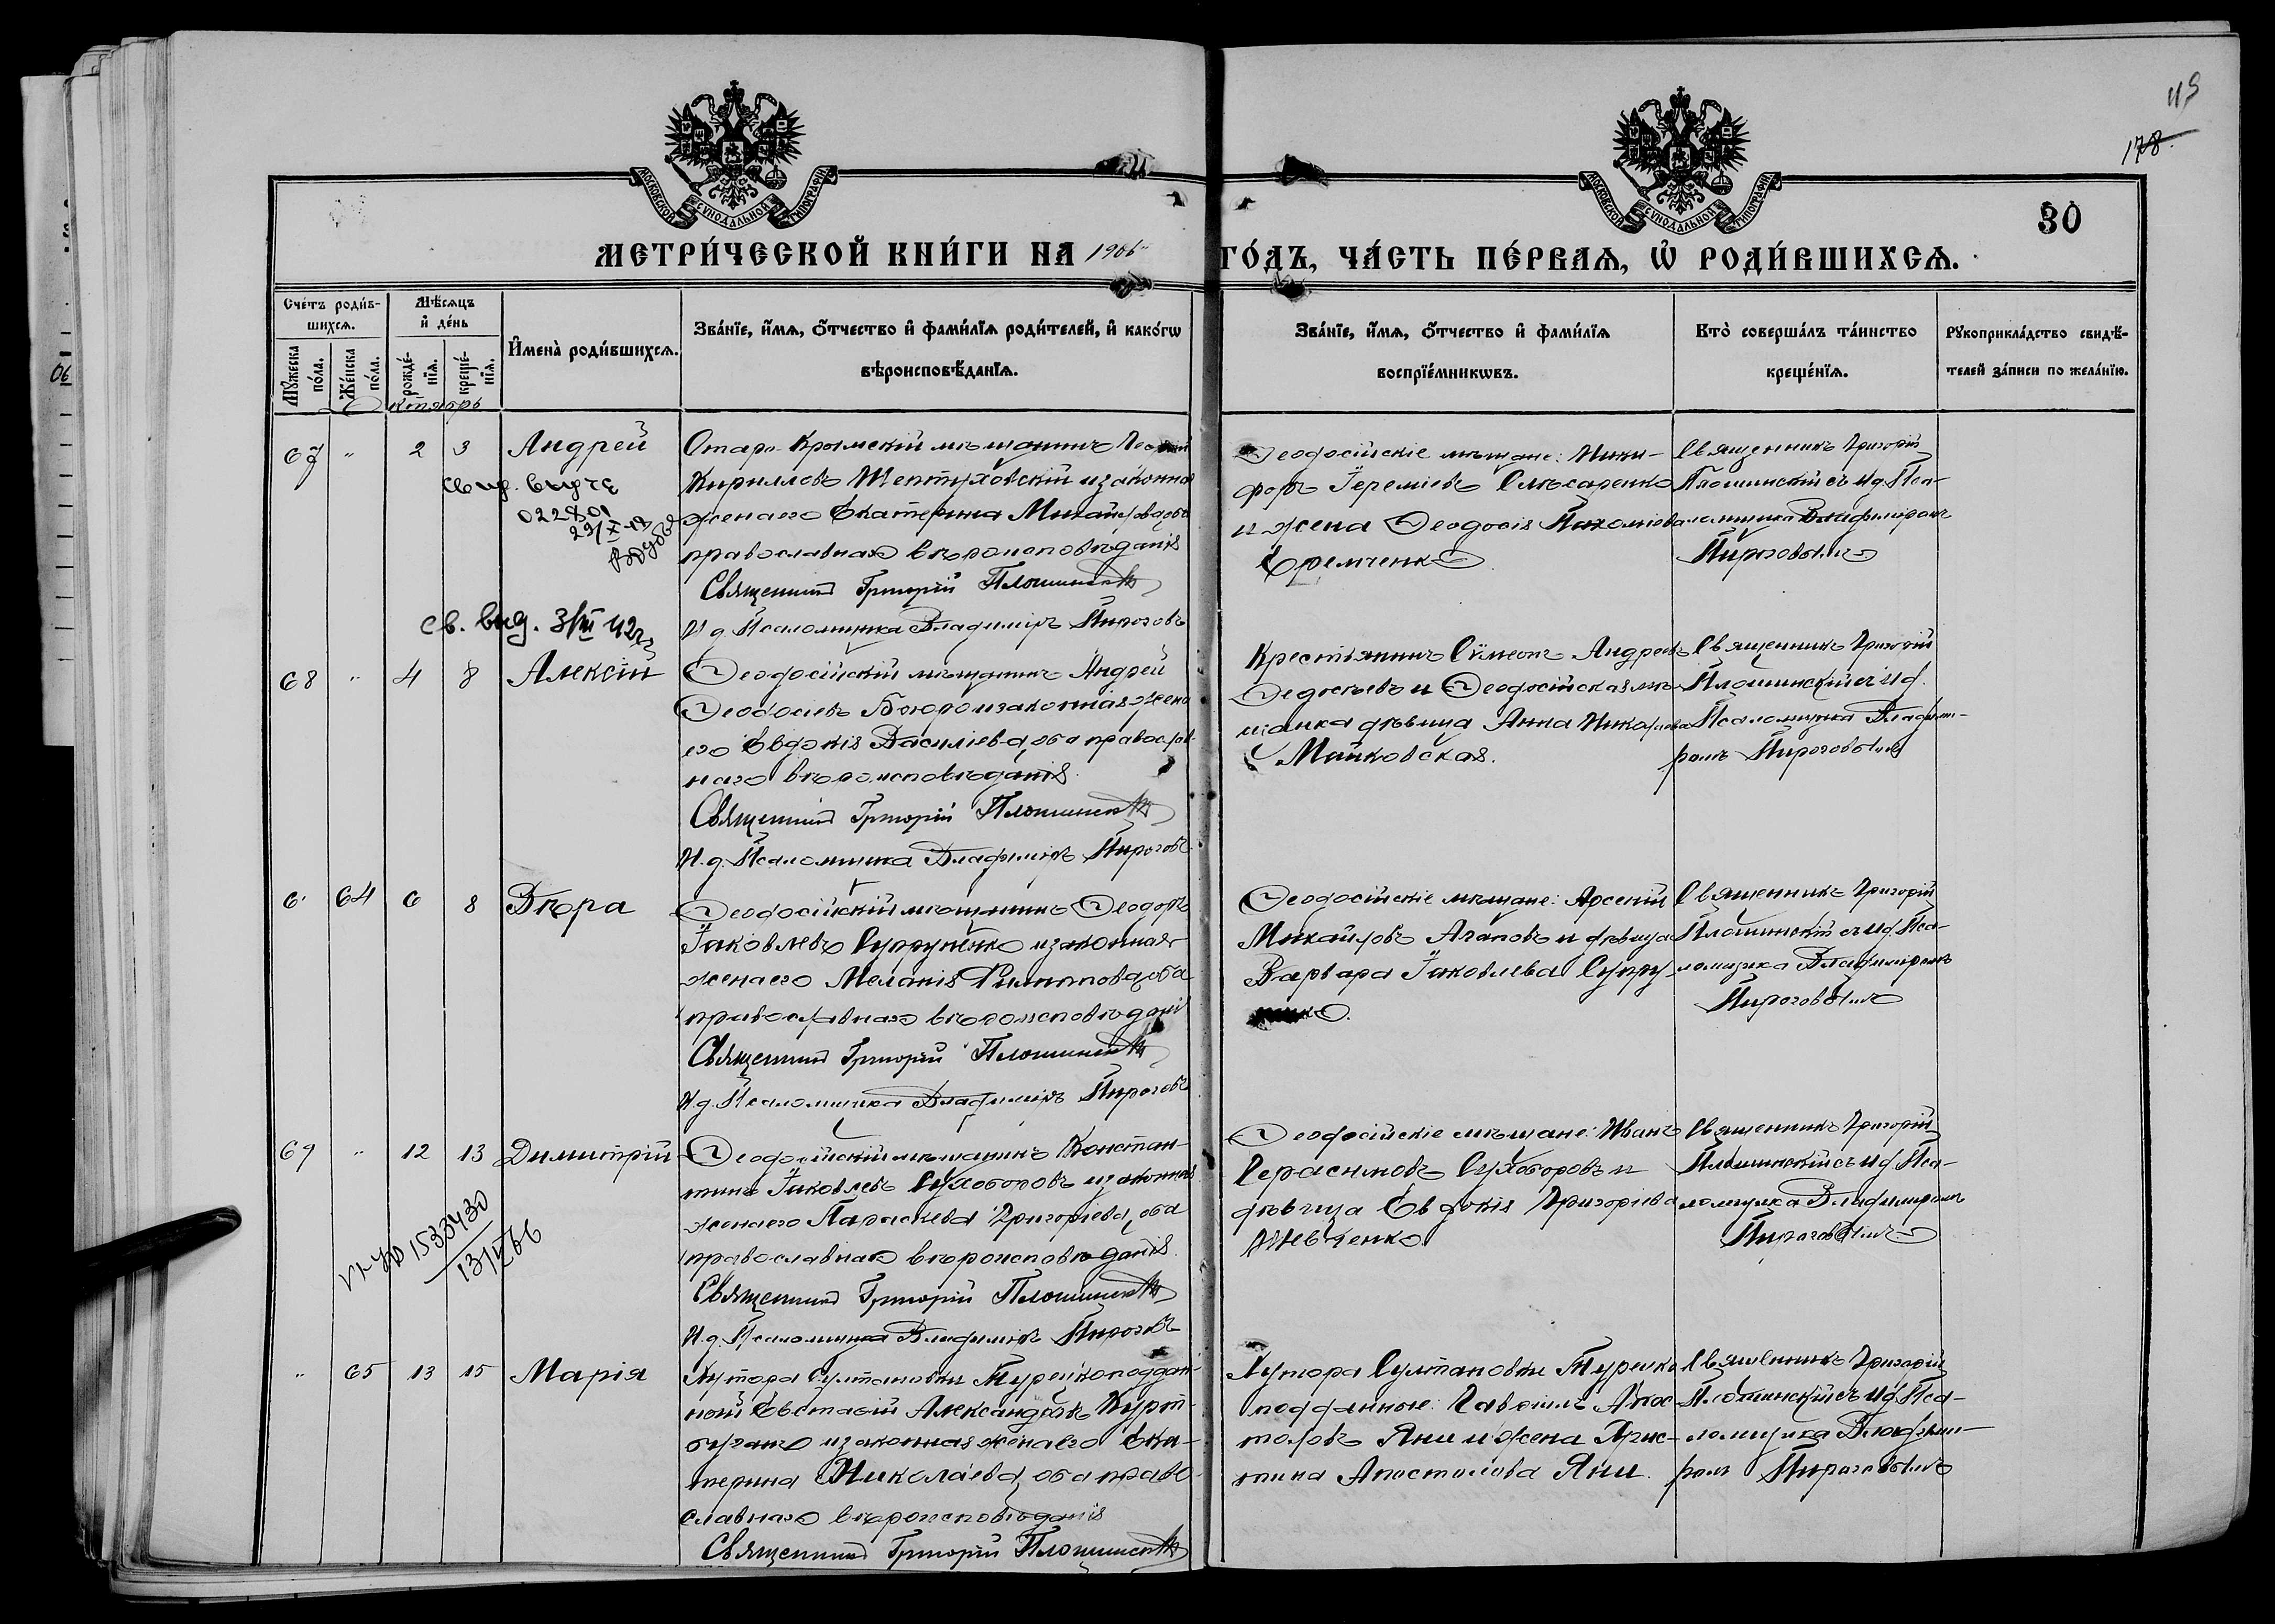 49
178.
30
МОСКОВСКОЙ СѴНОДАЛЬНОЙ ТИПОГРАФІИ
МОСКОВСКОЙ СѴНОДАЛЬНОЙ ТИПОГРАФІИ
МЕТРИ́ЧЕСКОЙ КНИ́ГИ НА 1906 ГО́ДЪ, ЧА́СТЬ ПЕ́РВАѦ, Ѡ҆ РОДИ́ВШИХСѦ.
Сче́тъ роди́вшихсѧ.
Мꙋ́жеска по́ла.
Же́нска по́ла.
Мѣ́сѧцъ и҆ де́нь
рожде́нїѧ.
креще́нїѧ.
И҆мена̀ роди́вшихсѧ.
Зва́нїе, и҆́мѧ, ѻ҆́тчество и҆ фами́лїѧ роди́телей, и҆ како́гѡ
вѣроисповѣ́данїѧ.
Зва́нїе, и҆́мѧ, ѻ҆́тчество и҆ фами́лїѧ
воспрїе́мникѡвъ.
Кто̀ соверша́лъ та́инство
креще́нїѧ.
Рꙋкоприкла́дство свидѣ́телей за́писи по жела́нїю.
Октябрь
67 " 2 3 Андрей
022801
Старо-Крымскій мѣщанинъ
Кирилловъ Шептуховскій и законная
жена его Екатерина Михайлова, оба
православнаго вѣроисповѣданія
Священникъ Григорій Плошинскій
И. д. Псаломщика Владиміръ Пироговъ
Ѳеодосійскіе мѣщане: Ники-
форъ Іереміевъ Слюсаренко
и жена Ѳеодосія Пахоміева
Еремченко
Священникъ Григорій
Плошинскій съ и. д. Пса-
ломщика Владиміромъ
Пироговымъ
св. выд. 3/III 42г
68 " 4 8 Алексій
Ѳеодосійскій мѣщанинъ Андрей
Ѳеодосіевъ и законная жена
его Евдокія Василіева, оба православ-
наго вѣроисповѣданія.
Священникъ Григорій Плошинскій
И. д. Псаломщика Владиміръ Пироговъ
Крестьянинъ Сѵмеонъ Андреевъ
Ѳедосѣевъ и Ѳеодосійская мѣ-
щанка дѣвица Анна Николаева
Майковская.
Священникъ Григорій
Плошинскій съ и. д.
Псаломщика Владимі-
ромъ Пироговымъ
64 6 8 Вѣра
Ѳеодосійскій мѣщанинъ Ѳеодоръ
Іаковлевъ Супруненко и законная
жена его Меланія Филиппова, оба
православнаго вѣроисповѣданія
Священникъ Григорій Плошинскій
И. д. Псаломщика Владиміръ Пироговъ
Ѳеодосійскіе мѣщане: Арсеній
Михайловъ Агаповъ и дѣвица
Варвара Іаковлева Супру-
ненко.
Священникъ Григорій
Плошинскій съ и. д. Пса-
ломщика Владиміромъ
Пироговымъ
69 " 12 13 Димитрій
1533430
13/V 66
Ѳеодосійскій мѣщанинъ Констан-
тинъ Іаковлевъ Сухоборовъ и законная
жена его Параскева Григоріева, оба
православнаго вѣроисповѣданія.
Священникъ Григорій Плошинскій
И. д. Псаломщика Владиміръ Пироговъ
Ѳеодосійскіе мѣщане: Иванъ
Герасимовъ Сухоборовъ и
дѣвица Евдокія Григоріева
Шевченко.
Священникъ Григорій
Плошинскій съ и. д. Пса-
ломщика Владиміромъ
Пироговымъ
" 65 13 15 Марія
Хутора Султановки Турецкоподдан-
ный Евстафій Александровъ Курт-
оглу и законная жена его Ека-
терина Николаева, оба право-
славнаго вѣроисповѣданія
Священникъ Григорій Плошинскій
Хутора Султановки Турецко
подданные: Гавріилъ Апос-
толовъ Яни и жена Хрис-
тина Апостолова Яни.
Священникъ Григорій
Плошинскій съ и. д. Пса-
ломщика Владимі-
ромъ Пироговымъ